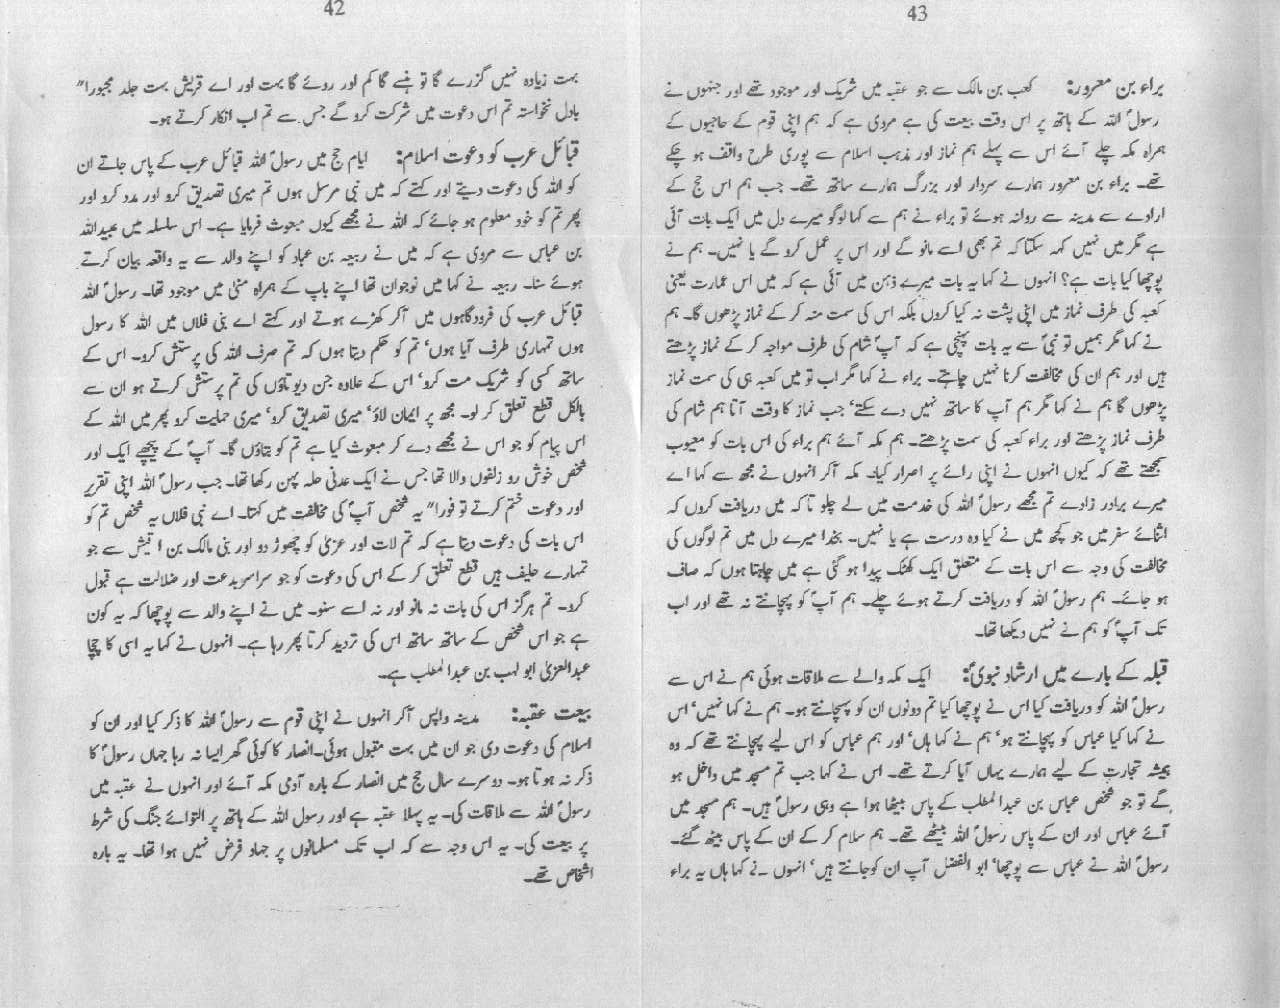 42
بہت زیادہ نہیں گزرے گا تو ہنسے گا کم اور روئے گا بہت اور اے قریش بہت جلد مجبورا"
بادل نخواستہ تم اس دعوت میں شرکت کرو گے جس سے تم اب انکار کرتے ہو۔
قبائل عرب کو دعوت اسلام: ایام حج میں رسولؐ اللہ قبائل عرب کے پاس جاتے ان
کو اللہ کی دعوت دیتے اور کہتے کہ میں نبی مرسل ہوں تم میری تصدیق کرو اور مدد کرو اور
پھر تم کو خود معلوم ہو جائے کہ اللہ نے مجھے کیوں مبعوث فرمایا ہے۔ اس سلسلہ میں عبیداللہ
بن عباس سے مروی ہے کہ میں نے ربیعہ بن عباد کو اپنے والد سے یہ واقعہ بیان کرتے
ہوئے سنا۔ ربیعہ نے کہا میں نوجوان تھا اپنے باپ کے ہمراہ منیٰ میں موجود تھا۔ رسولؐ اللہ
قبائل عرب کی فرودگاہوں میں آکر کھڑے ہوتے اور کہتے اے بنی فلاں میں اللہ کا رسول
ہوں تمہاری طرف آیا ہوں‘ تم کو حکم دیتا ہوں کہ تم صرف اللہ کی پرستش کرو۔ اس کے
ساتھ کسی کو شریک مت کرو‘ اس کے علاوہ جن دیوتاؤں کی تم پرستش کرتے ہو ان سے
بالکل قطع تعلق کر لو۔ مجھ پر ایمان لاؤ‘ میری تصدیق کرو‘ میری حمایت کرو پھر میں اللہ کے
اس پیام کو جو اس نے مجھے دے کر مبعوث کیا ہے تم کو بتاؤں گا۔ آپؐ کے پیچھے ایک اور
شخص خوش رو زلفوں والا تھا جس نے ایک عدنی حلہ پہن رکھا تھا۔ جب رسولؐ اللہ اپنی تقریر
اور دعوت ختم کرتے تو فورا" یہ شخص آپؐ کی مخالفت میں کہتا۔ اے بنی فلاں یہ شخص تم کو
اس بات کی دعوت دیتا ہے کہ تم لات اور عزیٰ کو چھوڑ دو اور بنی مالک بن اقیش سے جو
تمہارے حلیف ہیں قطع تعلق کر کے اس کی دعوت کو جو سراسر بدعت اور ضلالت ہے قبول
کرو۔ تم ہرگز اس کی بات نہ مانو اور نہ اسے سنو۔ میں نے اپنے والد سے پوچھا کہ یہ کون
ہے جو اس شخص کے ساتھ ساتھ اس کی تردید کرتا پھر رہا ہے۔ انہوں نے کہا یہ اسی کا چچا
عبدالعزیٰ ابو لہب بن عبدالمطلب ہے۔
بیعت عقبہ: مدینہ واپس آکر انہوں نے اپنی قوم سے رسولؐ اللہ کا ذکر کیا اور ان کو
اسلام کی دعوت دی جو ان میں بہت مقبول ہوئی۔انصار کا کوئی گھر ایسا نہ رہا جہاں رسولؐ کا
ذکر نہ ہوتا ہو۔ دوسرے سال حج میں انصار کے بارہ آدمی مکہ آئے اور انہوں نے عقبہ میں
رسولؐ اللہ سے ملاقات کی۔ یہ پہلا عقبہ ہے اور رسول اللہ کے ہاتھ پر التوائے جنگ کی شرط
پر بیعت کی۔ یہ اس وجہ سے کہ اب تک مسلمانوں پر جہاد فرض نہیں ہوا تھا۔ یہ بارہ
اشخاص تھے۔
43
براء بن معرور: کعب بن مالک سے جو عقبہ میں شریک اور موجود تھے اور جنہوں نے
رسولؐ اللہ کے ہاتھ پر اس وقت بیعت کی ہے مروی ہے کہ ہم اپنی قوم کے حاجیوں کے
ہمراہ مکہ چلے آئے اس سے پہلے ہم نماز اور مذہب اسلام سے پوری طرح واقف ہو چکے
تھے۔ براء بن معرور ہمارے سردار اور بزرگ ہمارے ساتھ تھے۔ جب ہم اس حج کے
ارادے سے مدینہ سے روانہ ہوئے تو براء نے ہم سے کہا لوگو میرے دل میں ایک بات آئی
ہے مگر میں نہیں کہہ سکتا کہ تم بھی اسے مانو گے اور اس پر عمل کرو گے یا نہیں۔ ہم نے
پوچھا کیا بات ہے؟ انہوں نے کہا یہ بات میرے ذہن میں آئی ہے کہ میں اس عمارت یعنی
کعبہ کی طرف نماز میں اپنی پشت نہ کیا کروں بلکہ اس کی سمت منہ کر کے نماز پڑھوں گا۔ ہم
نے کہا مگر ہمیں تو نبیؐ سے یہ بات پہنچی ہے کہ آپؐ شام کی طرف مواجہ کر کے نماز پڑھتے
ہیں اور ہم ان کی مخالفت کرنا نہیں چاہتے۔ براء نے کہا مگر اب تو میں کعبہ ہی کی سمت نماز
پڑھوں گا ہم نے کہا مگر ہم آپ کا ساتھ نہیں دے سکتے‘ جب نماز کا وقت آتا ہم شام کی
طرف نماز پڑھتے اور براء کعبہ کی سمت پڑھتے۔ ہم مکہ آئے ہم براء کی اس بات کو معیوب
سمجھتے تھے کہ کیوں انہوں نے اپنی رائے پر اصرار کیا۔ مکہ آکر انہوں نے مجھ سے کہا اے
میرے برادر زادے تم مجھے رسولؐ اللہ کی خدمت میں لے چلو تاکہ میں دریافت کروں کہ
اثنائے سفر میں جو کچھ میں نے کیا وہ درست ہے یا نہیں۔ بخدا میرے دل میں تم لوگوں کی
مخالفت کی وجہ سے اس بات کے متعلق ایک کھٹک پیدا ہو گئی ہے میں چاہتا ہوں کہ صاف
ہو جائے۔ ہم رسولؐ اللہ کو دریافت کرتے ہوئے چلے۔ ہم آپؐ کو پہچانتے نہ تھے اور اب
تک آپؐ کو ہم نے نہیں دیکھا تھا۔
قبلہ کے بارے میں ارشاد نبویؐ: ایک مکہ والے سے ملاقات ہوئی ہم نے اس سے
رسولؐ اللہ کو دریافت کیا اس نے پوچھا کیا تم دونوں ان کو پہچانتے ہو۔ ہم نے کہا نہیں‘ اس
نے کہا کیا عباس کو پہچانتے ہو‘ ہم نے کہا ہاں‘ اور ہم عباس کو اس لیے پہچانتے تھے کہ وہ
ہمیشہ تجارت کے لیے ہمارے یہاں آیا کرتے تھے۔ اس نے کہا جب تم مسجد میں داخل ہو
گے تو جو شخص عباس بن عبدالمطلب کے پاس بیٹھا ہوا ہے وہی رسولؐ ہیں۔ ہم مسجد میں
آئے عباس اور ان کے پاس رسولؐ اللہ بیٹھے تھے۔ ہم سلام کر کے ان کے پاس بیٹھ گئے۔
رسولؐ اللہ نے عباس سے پوچھا‘ ابو الفضل آپ ان کو جانتے ہیں‘ انہوں نے کہا ہاں یہ براء